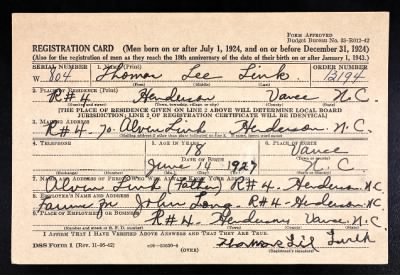 FORM APPROVED
Budget Bureau No. 33-R012-42
REGISTRATION CARD (Men born on or after July 1, 1924, and on or before December 31, 1924)
(Also for the registration of men as they reach the 18th anniversary of the date of their birth on or after January 1, 1943.)
SERIAL NUMBER 1. NAME (Print) ORDER NUMBER
W 804 Thomas Lee Link 13194
(First) (Middle) (Last)
2. PLACE OF RESIDENCE (Print)
R#4 Henderson Vance N.C.
(Number and street) (Town, township, village, or city) (County) (State)
[THE PLACE OF RESIDENCE GIVEN ON LINE 2 ABOVE WILL DETERMINE LOCAL BOARD
JURISDICTION; LINE 2 OF REGISTRATION CERTIFICATE WILL BE IDENTICAL]
3. MAILING ADDRESS
R#4 - % Alvin Link Henderson N.C.
4. TELEPHONE 5. AGE IN YEARS 6. PLACE OF BIRTH
18 Vance
DATE OF BIRTH
June 14 N.C.
7. NAME AND ADDRESS OF PERSON WHO WILL ALWAYS KNOW YOUR ADDRESS
Alvin Link (Father) R#4 - Henderson N.C.
8. EMPLOYER'S NAME AND ADDRESS
John Long - R#4 - Henderson N.C.
9. PLACE OF EMPLOYMENT OR BUSINESS
R#4 - Henderson Vance N.C.
I AFFIRM THAT I HAVE VERIFIED ABOVE ANSWERS AND THAT THEY ARE TRUE.
DSS Form 1 (Rev. 11-16-42) (OVER) Thomas
(Registrant's signature)